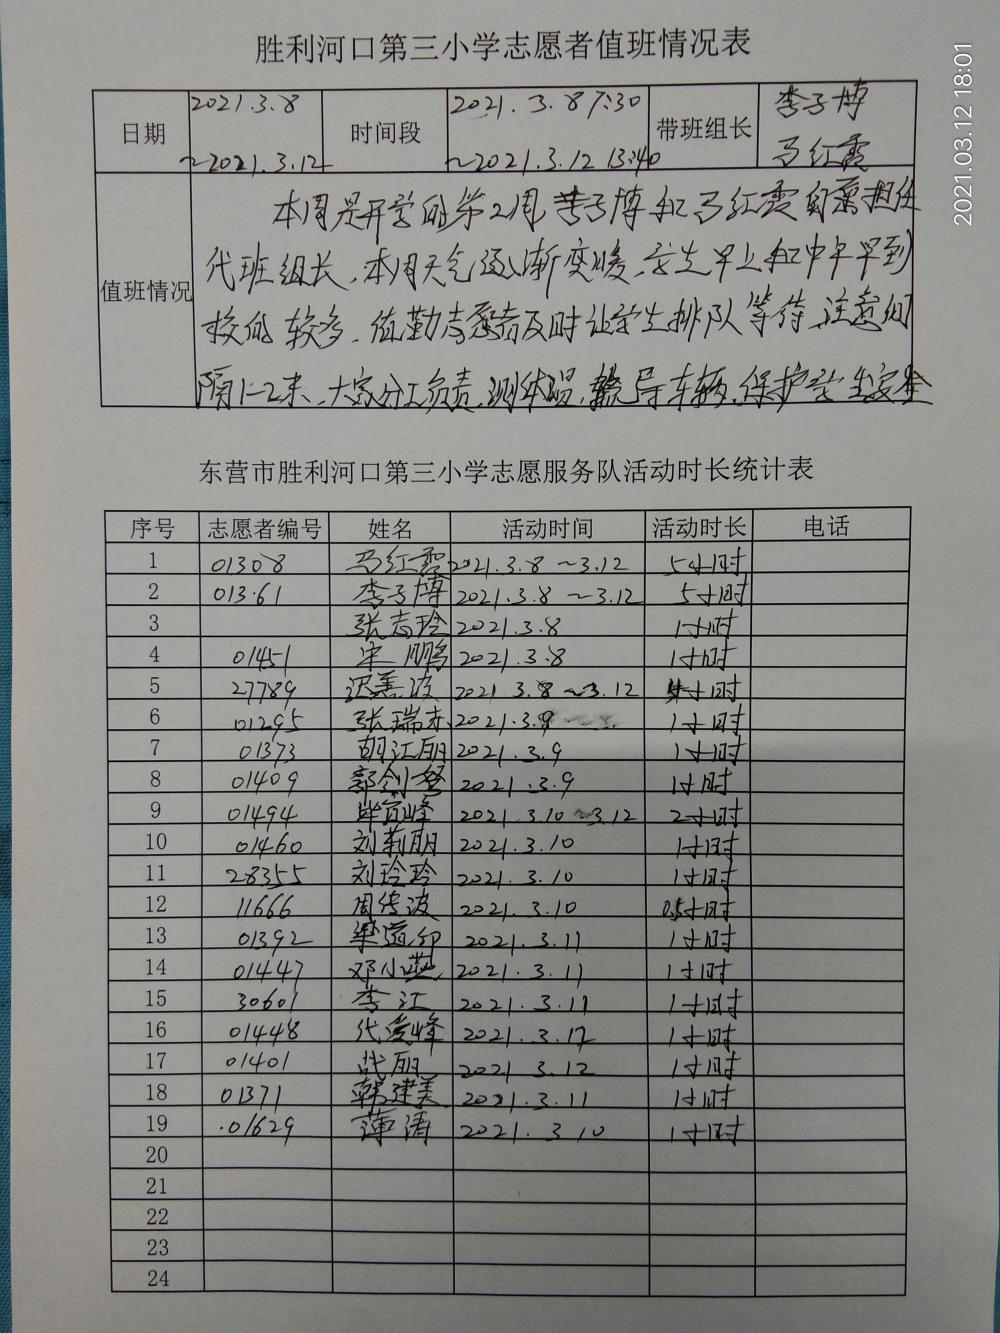 胜利河口第三小学志愿者值班情况表
2021.03.12 18:01
日期 2021.3.8 ~2021.3.12 时间段 2021.3.8 7:30 ~2021.3.12 13:40 带班组长 李子博 马红霞
值班情况
本周是开学的第2周,李子博和马红霞自愿担任
代班组长,本周天气逐渐变暖,学生早上和中午早到
校的较多,值勤志愿者及时让学生排队等待,注意间
隔1-2米,大家分工负责,测体温,疏导车辆,保护学生安全
东营市胜利河口第三小学志愿服务队活动时长统计表
序号 志愿者编号 姓名 活动时间 活动时长 电话
1 01308 马红霞 2021.3.8~3.12 5小时
2 01361 李子博 2021.3.8~3.12 5小时
3 张志玲 2021.3.8 1小时
4 01451 宋鹏 2021.3.8 1小时
5 27789 迟美波 2021.3.8~3.12 小时
6 01295 张瑞 2021.3.9 1小时
7 01373 胡江丽 2021.3.9 1小时
8 01409 郭剑 2021.3.9 1小时
9 01494 毕 峰 2021.3.10~3.12 2小时
10 01460 刘莉丽 2021.3.10 1小时
11 28355 刘玲玲 2021.3.10 1小时
12 11666 周传波 2021.3.10 0.5小时
13 01392 梁 2021.3.11 1小时
14 01447 邓小燕 2021.3.11 1小时
15 30601 李江 2021.3.11 1小时
16 01448 代爱峰 2021.3.12 1小时
17 01401 战丽 2021.3.12 1小时
18 01371 韩建美 2021.3.11 1小时
19 01629 薄涛 2021.3.10 1小时
20
21
22
23
24